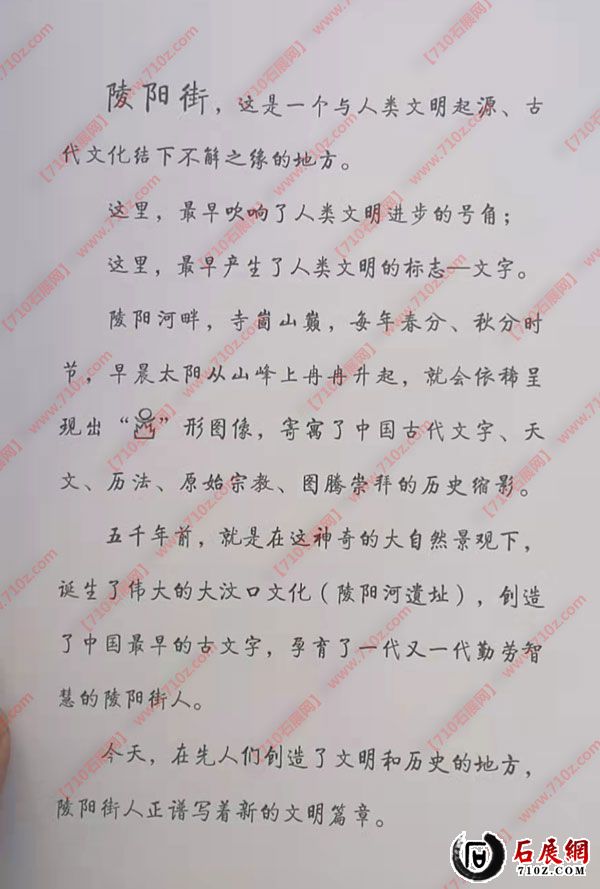 陵阳街，这是一个与人类文明起源、古
代文化结下不解之缘的地方。
这里，最早吹响了人类文明进步的号角；
这里，最早产生了人类文明的标志—文字。
陵阳河畔，寺崮山巅，每年春分、秋分时
节，早晨太阳从山峰上冉冉升起，就会依稀呈
现出“”形图像，寄寓了中国古代文字、天
文、历法、原始宗教、图腾崇拜的历史缩影。
五千年前，就是在这神奇的大自然景观下，
诞生了伟大的大汶口文化（陵阳河遗址），创造
了中国最早的古文字，孕育了一代又一代勤劳智
慧的陵阳街人。
今天，在先人们创造了文明和历史的地方，
陵阳街人正谱写着新的文明篇章。
【710石展网】 www.710z.com
石展網
710Z.COM